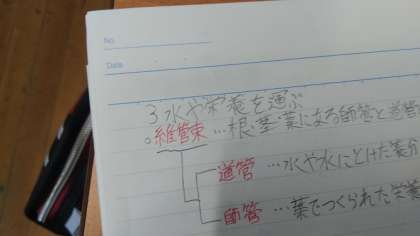 No.
Date
3 水や栄養を運ぶ
○維管束…根・茎・葉にある師管と道管
道管…水や水にとけた養分
師管…葉でつくられた栄養